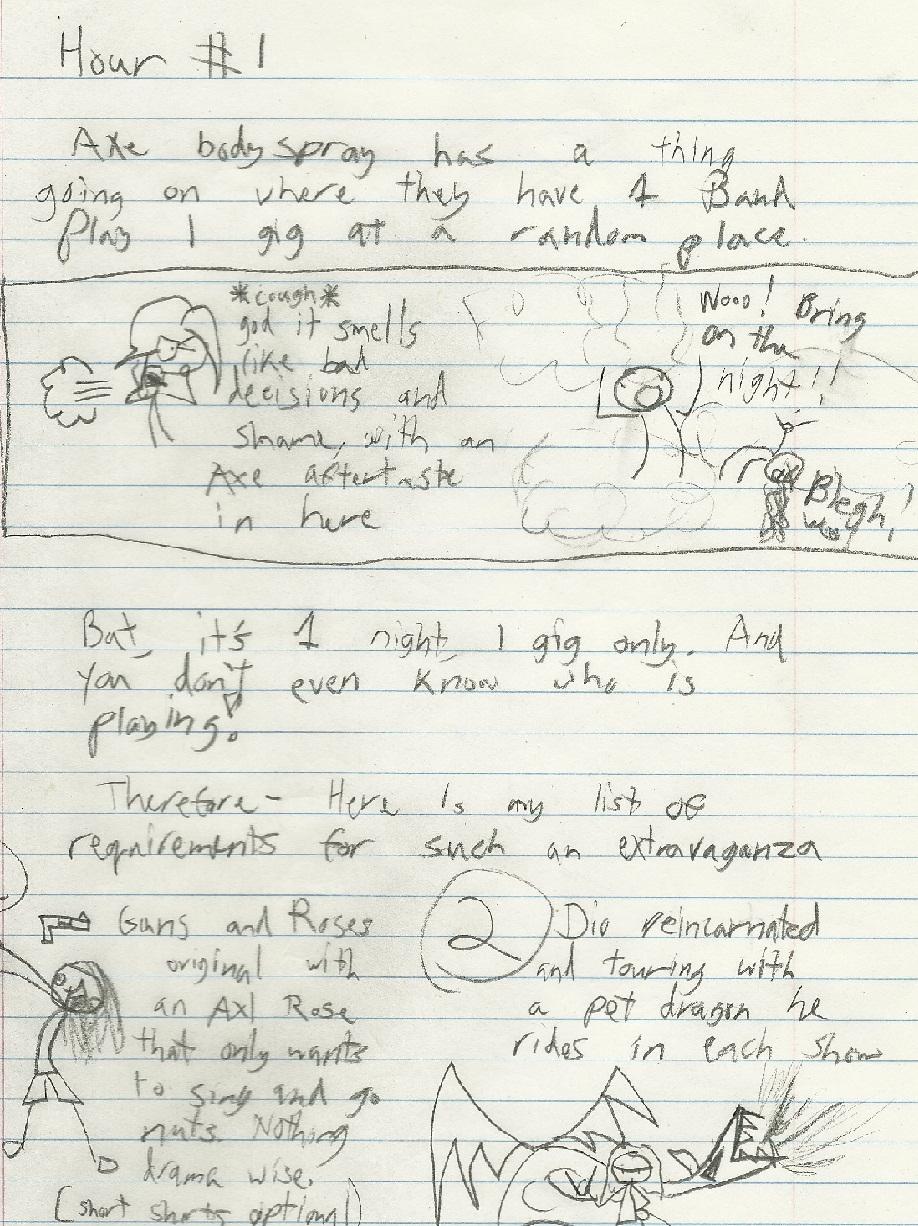 Hour #1
Axe body spray has a thing
going on where they have 1 Band
Play 1 gig at a random place.
*cough*
god it smells
like bad
decisions and
shame, with an
Axe aftertaste
in here
Wooo! Bring
on the
night!!
Blegh!
But, it's 1 night, 1 gig only. And
you don't even know who is
playing!
Therefore- Here is my list of
requirements for such an extravaganza
Guns and Roses
original with
an Axl Rose
that only wants
to sing and go
nuts. Nothing
drama wise.
(short shorts optional)
2 Dio reincarnated
and touring with
a pet dragon he
rides in each show